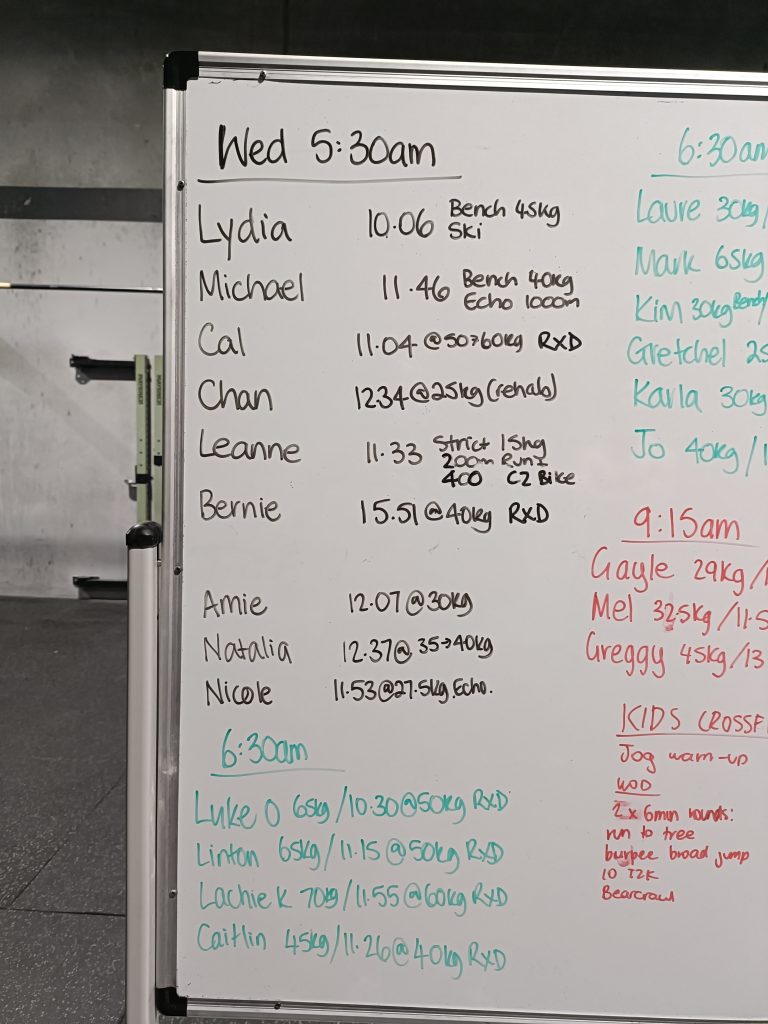 Wed 5:30am
Lydia 10.06 Bench 45kg
Ski
Michael 11.46 Bench 40kg
Echo 1000m
Cal 11.04 @50→60kg RXD
Chan 1234@25kg (rehab)
Leanne 11.33 Strict 15kg
200m Run
400 C2 Bike
Bernie 15.51 @40kg RXD
Amie 12.07@30kg
Natalia 12.37@ 35→40kg
Nicole 11.53@27.5kg Echo.
6:30am
Luke O 65kg/10.30@50kg RXD
Linton 65kg/11.15 @50kg RXD
Lachie K 70kg/11.55@60kg RXD
Caitlin 45kg/11.26@40kg RXD
6:30am
Laure 30kg/
Mark 65kg
Kim 30kg Bench/
Gretchel 25
Karla 30kg
Jo 40kg/1
9:15am
Gayle 29kg/1
Mel 32.5kg/11.5
Greggy 45kg/13
KIDS CROSSF
Jog warm-up
WOD
2 x 6min rounds:
run to tree
burpee broad jump
10 T2K
Bearcrawl